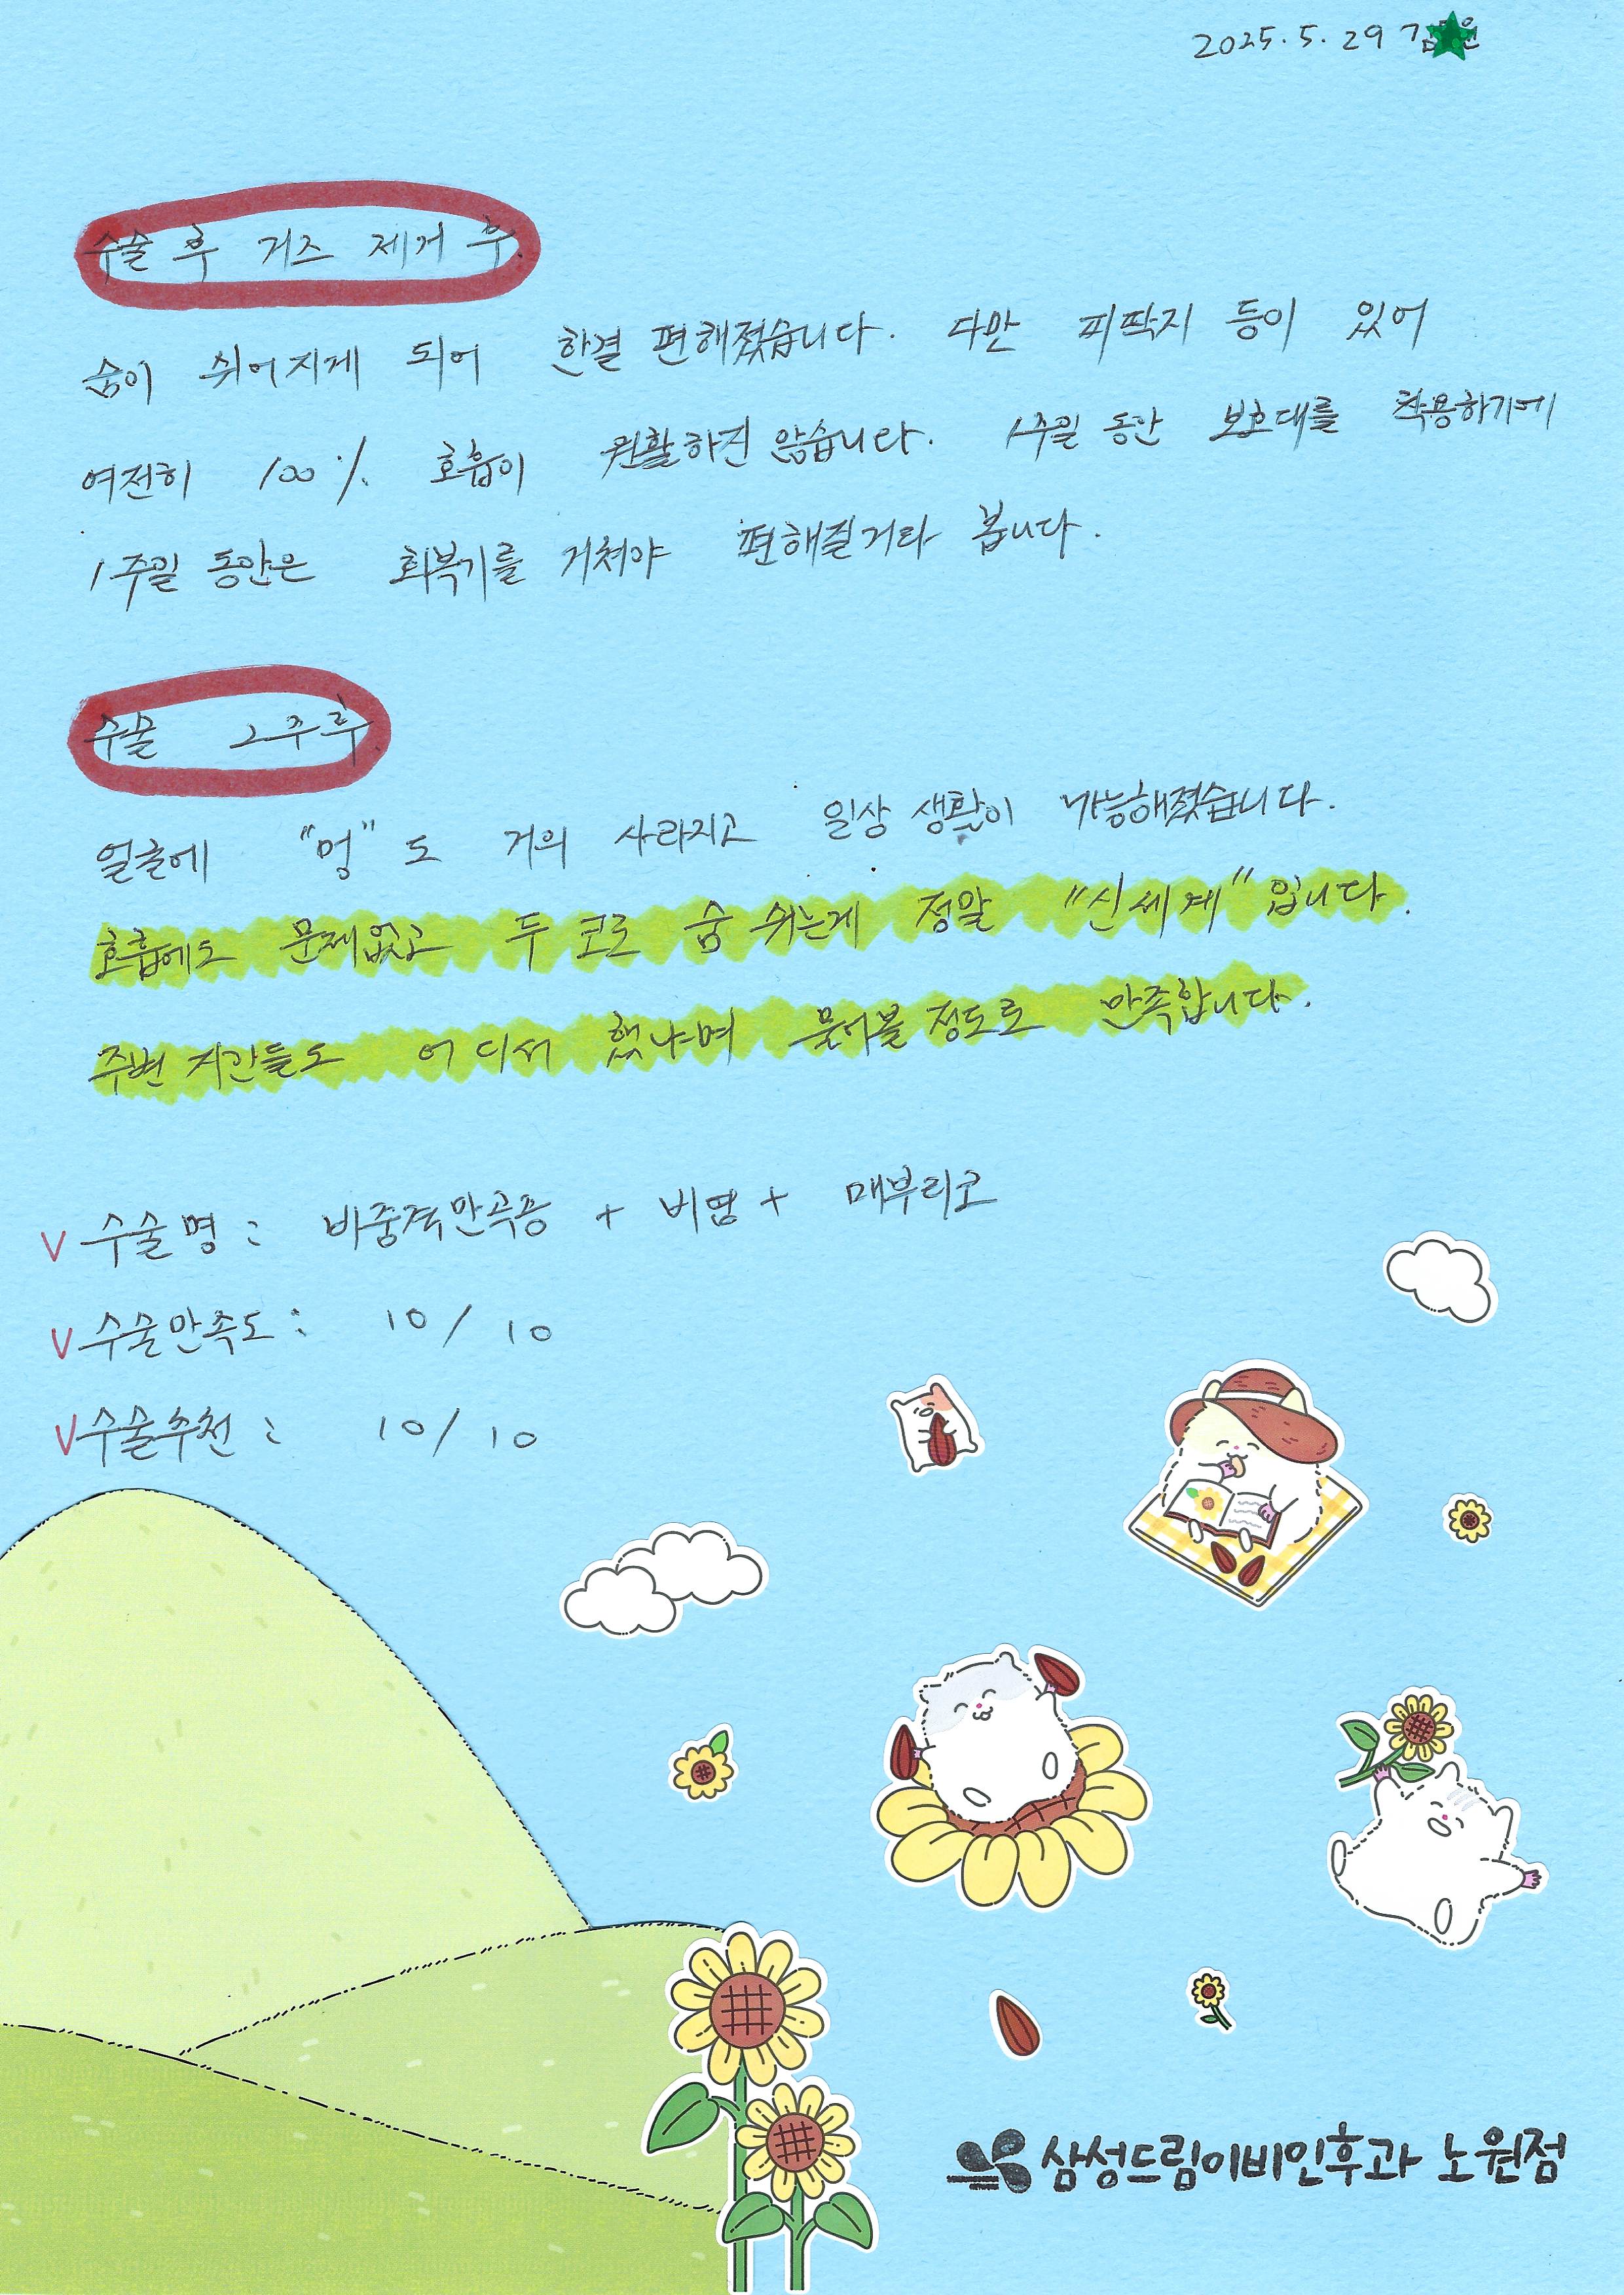 2025. 5. 29
수술 후 거즈 제거 후.
숨이 쉬어지게 되어 한결 편해졌습니다. 다만 피딱지 등이 있어
여전히 100% 호흡이 원활하진 않습니다. 1주일 동안 보호대를 착용하기에
1주일 동안은 회복기를 거쳐야 편해질거라 봅니다.
수술 2주후.
얼굴에 "멍"도 거의 사라지고 일상 생활이 가능해졌습니다.
호흡에도 문제없고 두 코로 숨 쉬는게 정말 "신세계"입니다.
주변 지인들도 어디서 했냐며 물어볼 정도로 만족합니다.
V 수술명 : 비중격만곡증 + 비염 + 매부리코
V 수술만족도 : 10 / 10
V 수술추천 : 10 / 10
삼성드림이비인후과 노원점